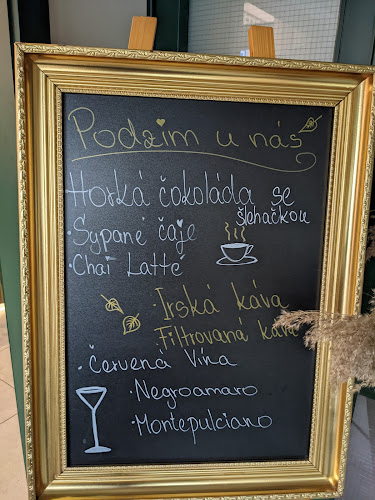 Podzim u nás
Horká čokoláda se
šlehačkou
· Sypané čaje
· Chai Latté
· Irská káva
· Filtrovaná káva
· Červená Vína
· Negroamaro
· Montepulciano